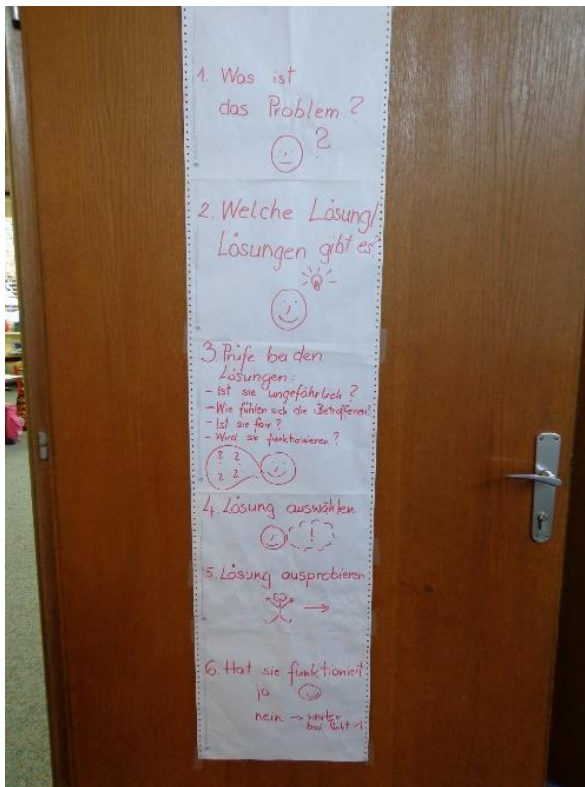 1. Was ist
das Problem ?
?
2. Welche Lösung/
Lösungen gibt es?
3. Prüfe bei den
Lösungen:
- Ist sie ungefährlich ?
- Wie fühlen sich die Betroffenen?
- Ist sie fair ?
- Wird sie funktionieren ?
? ?
? ?
4. Lösung auswählen
!
5. Lösung ausprobieren
6. Hat sie funktioniert
ja
nein → weiter
bei